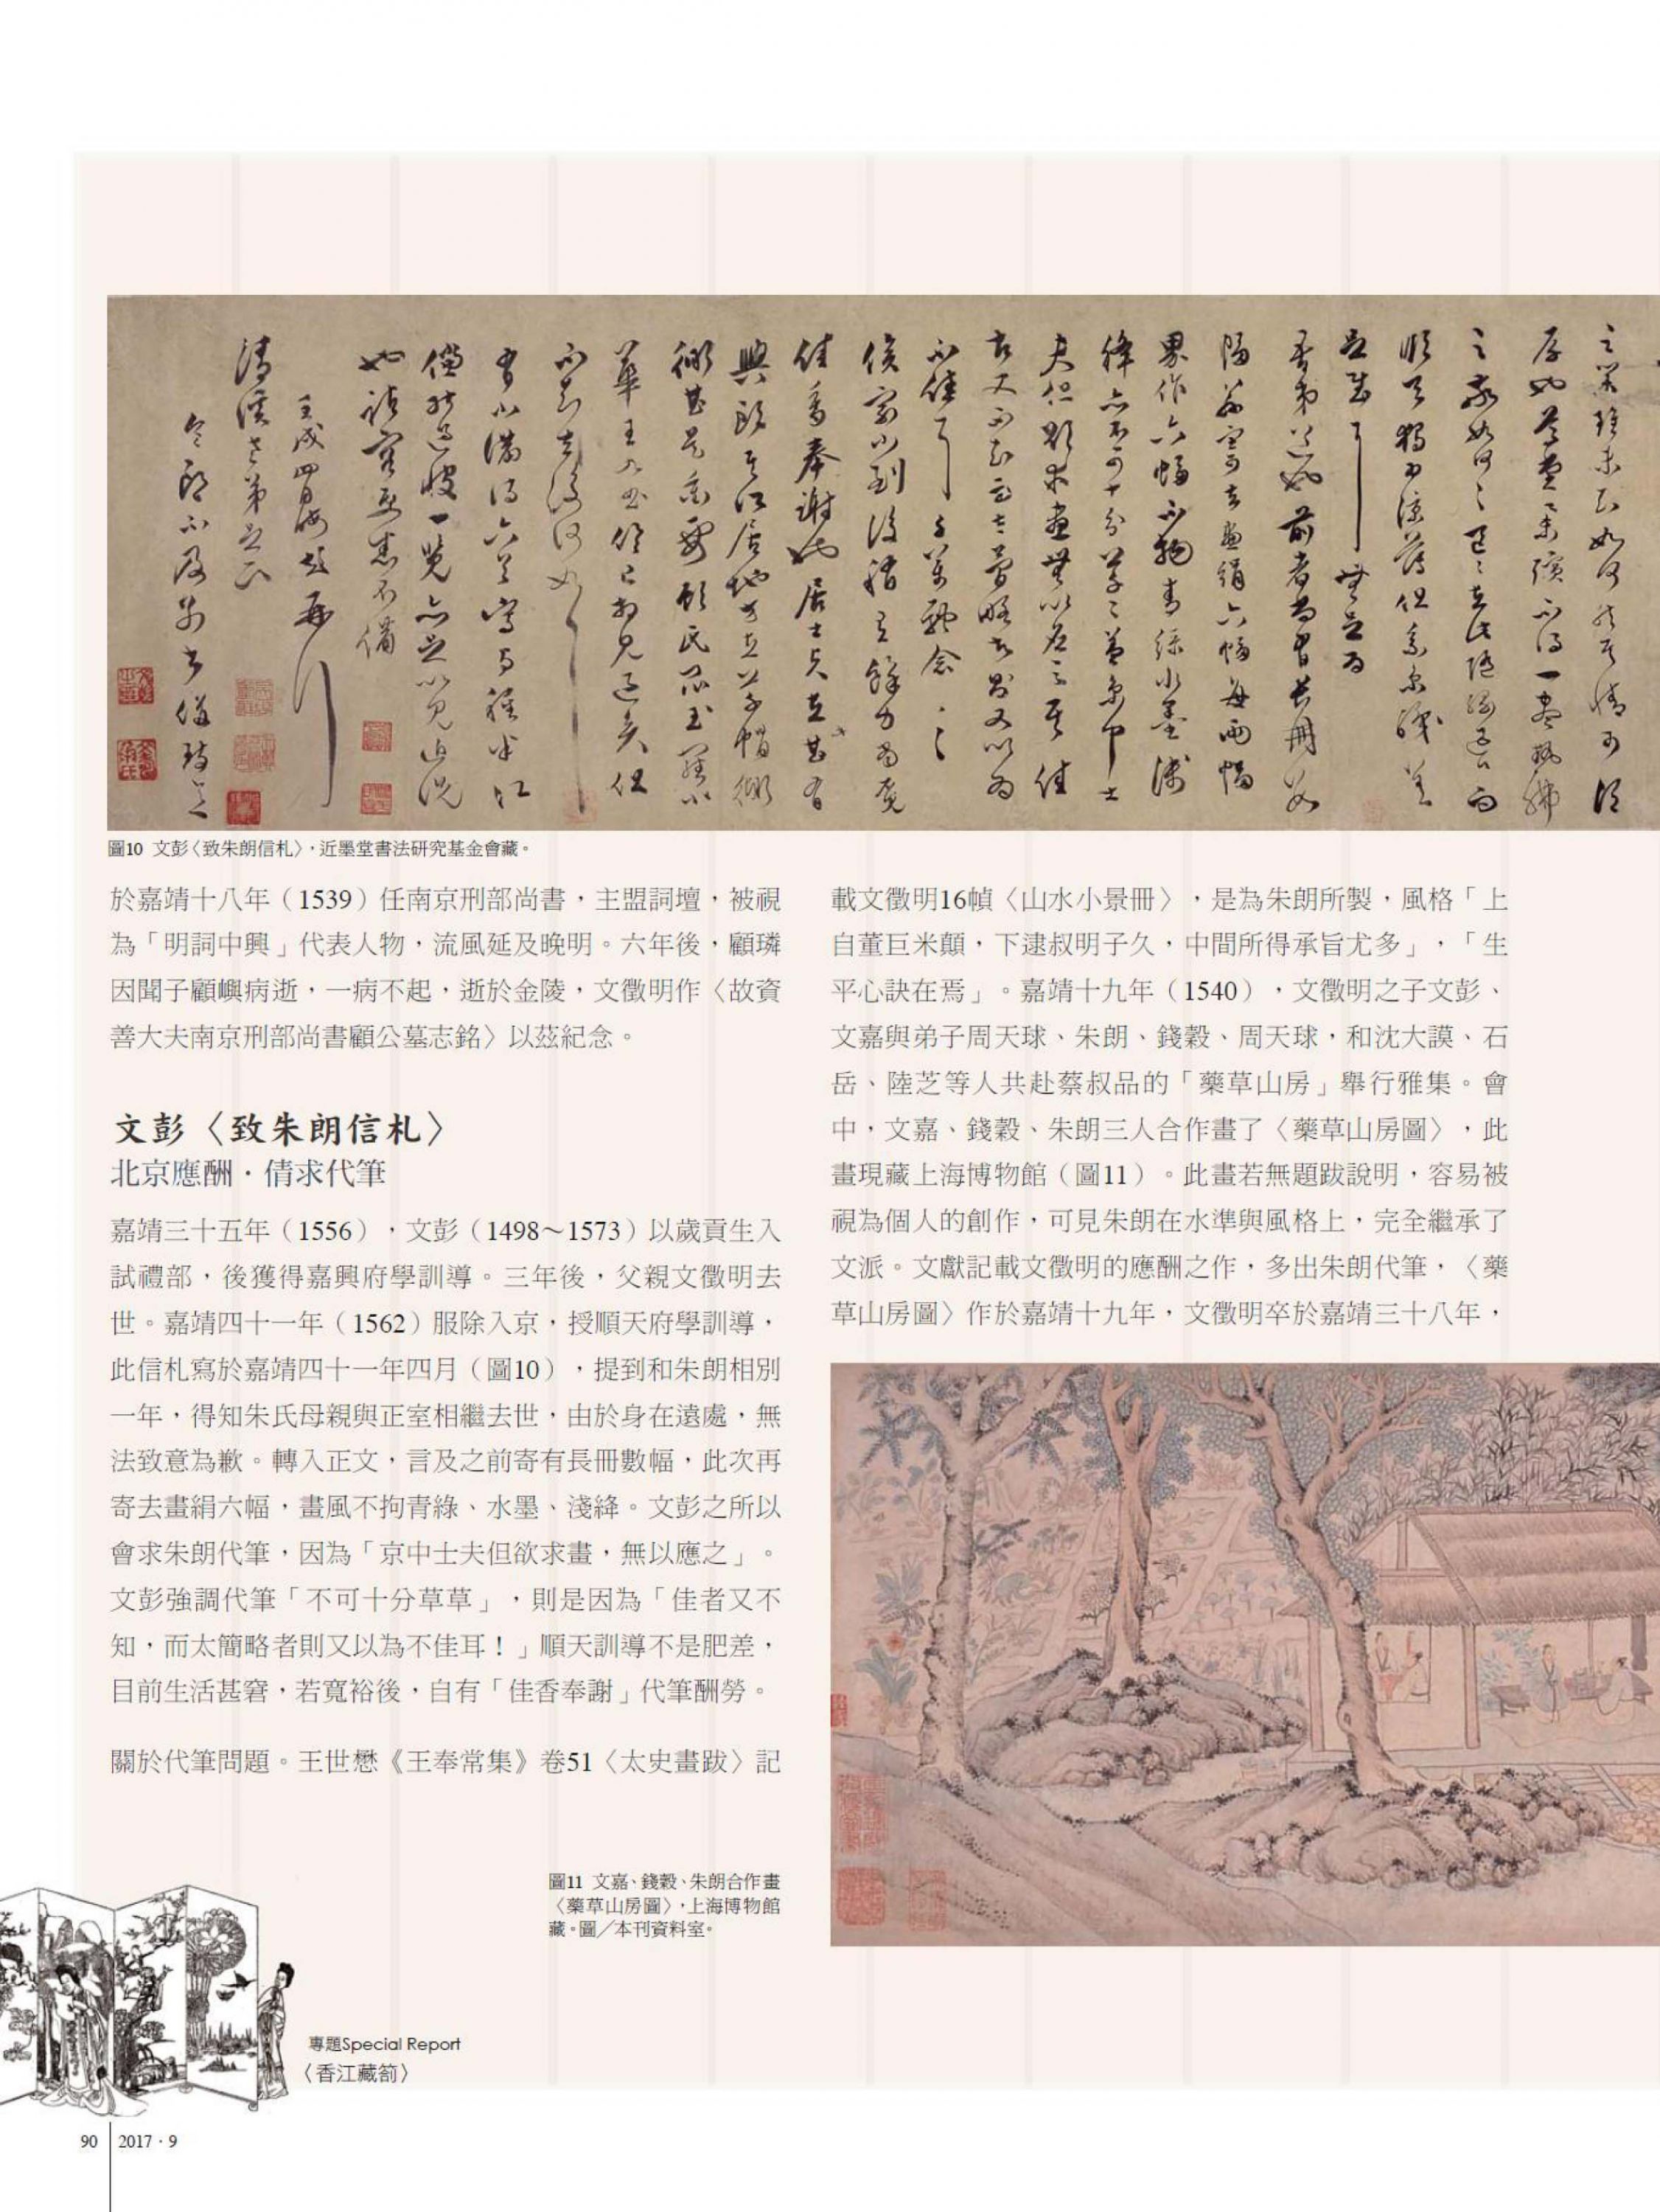 吾弟道也前者曾有長冊
幅茲寄去畫絹六幅每兩幅
界作六幅不拘青綠水墨淺
絳亦不可十分草草蓋京中士
夫但欲求畫無以應之耳佳
者又不知而太簡略者則又以為
不佳耳千萬
佳香奉謝也居士
壬戌四月
圖10 文彭〈致朱朗信札〉,近墨堂書法研究基金會藏。
於嘉靖十八年（1539）任南京刑部尚書，主盟詞壇，被視
為「明詞中興」代表人物，流風延及晚明。六年後，顧璘
因聞子顧嶼病逝，一病不起，逝於金陵，文徵明作〈故資
善大夫南京刑部尚書顧公墓志銘〉以茲紀念。
文彭〈致朱朗信札〉
北京應酬．倩求代筆
嘉靖三十五年（1556），文彭（1498～1573）以歲貢生入
試禮部，後獲得嘉興府學訓導。三年後，父親文徵明去
世。嘉靖四十一年（1562）服除入京，授順天府學訓導，
此信札寫於嘉靖四十一年四月（圖10），提到和朱朗相別
一年，得知朱氏母親與正室相繼去世，由於身在遠處，無
法致意為歉。轉入正文，言及之前寄有長冊數幅，此次再
寄去畫絹六幅，畫風不拘青綠、水墨、淺絳。文彭之所以
會求朱朗代筆，因為「京中士夫但欲求畫，無以應之」。
文彭強調代筆「不可十分草草」，則是因為「佳者又不
知，而太簡略者則又以為不佳耳！」順天訓導不是肥差，
目前生活甚窘，若寬裕後，自有「佳香奉謝」代筆酬勞。
關於代筆問題。王世懋《王奉常集》卷51〈太史畫跋〉記
載文徵明16幀〈山水小景冊〉，是為朱朗所製，風格「上
自董巨米顛，下逮叔明子久，中間所得承旨尤多」，「生
平心訣在焉」。嘉靖十九年（1540），文徵明之子文彭、
文嘉與弟子周天球、朱朗、錢穀、周天球，和沈大謨、石
岳、陸芝等人共赴蔡叔品的「藥草山房」舉行雅集。會
中，文嘉、錢穀、朱朗三人合作畫了〈藥草山房圖〉，此
畫現藏上海博物館（圖11）。此畫若無題跋說明，容易被
視為個人的創作，可見朱朗在水準與風格上，完全繼承了
文派。文獻記載文徵明的應酬之作，多出朱朗代筆，〈藥
草山房圖〉作於嘉靖十九年，文徵明卒於嘉靖三十八年，
圖11 文嘉、錢穀、朱朗合作畫
〈藥草山房圖〉,上海博物館
藏。圖／本刊資料室。
專題Special Report
〈香江藏箚〉
90 2017．9